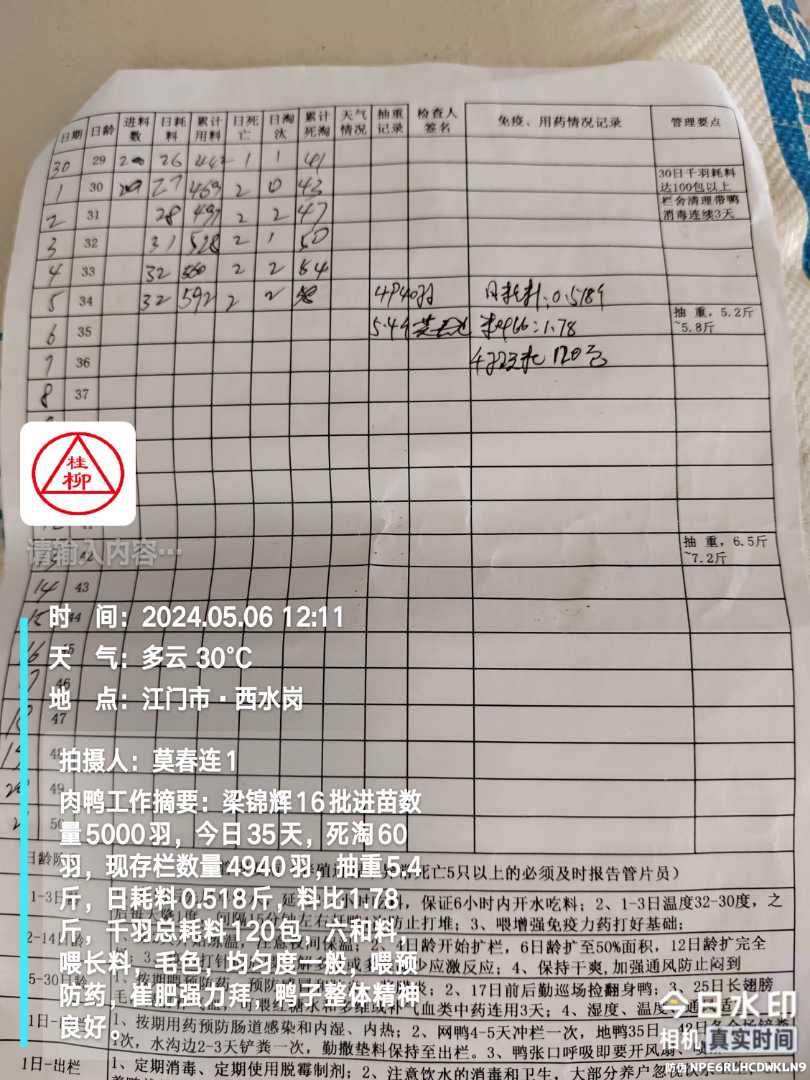 日期 日龄 进料数 日耗料 累计用料 日死亡 日淘汰 累计死淘 天气情况 抽重记录 检查人签名 免疫、用药情况记录 管理要点
30 29 200 26 442 1 1 41
1 30 200 27 469 2 0 43 30日千羽耗料达100包以上
2 31 28 497 2 2 47 栏舍清理带鸭消毒连续3天
3 32 31 528 2 1 50
4 33 32 560 2 2 54
5 34 32 592 2 2 58 4940羽 日耗料:0.518斤
6 35 5.4斤 料比:1.78 抽 重，5.2斤~5.8斤
7 36 120包
8 37
桂柳
请输入内容…
42 抽 重，6.5斤~7.2斤
14 43
15 44
16 45
46
47
49
时 间：2024.05.06 12:11
天 气：多云 30℃
地 点：江门市·西水岗
拍摄人：莫春连1
肉鸭工作摘要：梁锦辉16批进苗数
量5000羽，今日35天，死淘60
羽，现存栏数量4940羽，抽重5.4
斤，日耗料0.518斤，料比1.78
斤，千羽总耗料120包，六和料，
喂长料，毛色，均匀度一般，喂预
防药，崔肥强力拜，鸭子整体精神
良好。
死亡5只以上的必须及时报告管片员）
保证6小时内开水吃料；2、1-3日温度32-30度，之
防止打堆；3、喂增强免疫力药打好基础；
日龄开始扩栏，6日龄扩至50%面积，12日龄扩完全
少应激反应；4、保持干爽,加强通风防止闷到
2、17日前后勤巡场捡翻身鸭；3、25日长翅膀
1、按期用药预防肠道感染和内湿、内热；2、网鸭4-5天冲栏一次，地鸭35日、42日各全场铲粪
次，水沟边2-3天铲粪一次，勤撒垫料保持至出栏。3、鸭张口呼吸即要开风扇
1日-出栏 1、定期消毒、定期使用脱霉制剂；2、注意饮水的消毒和卫生，大部分养户忽视饮水
今日水印
相机 真实时间
防伪 NPE6RLHCDWKLN9